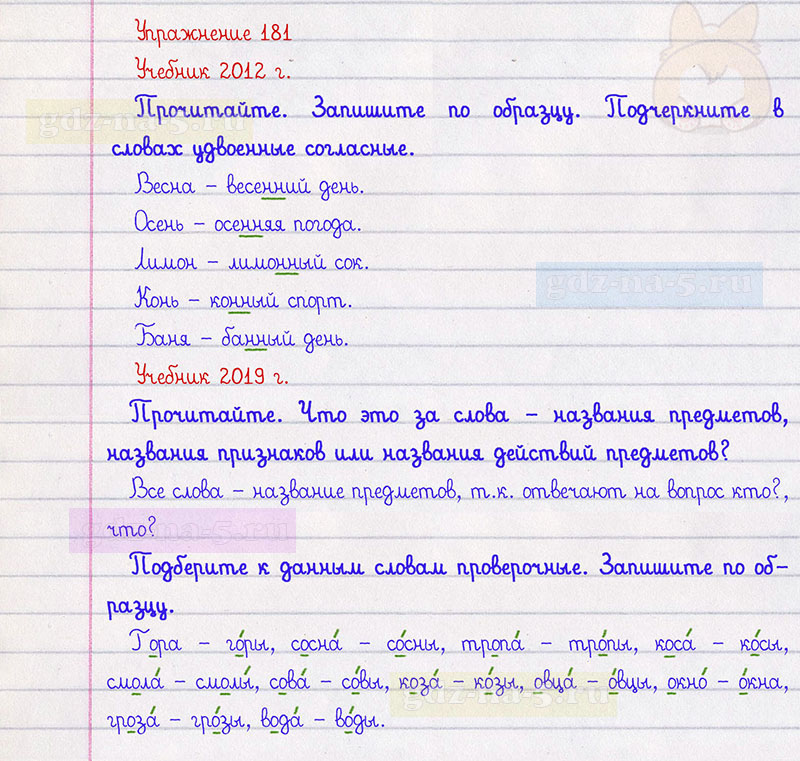 Упражнение 181
Учебник 2012 г.
Прочитайте. Запишите по образцу. Подчеркните в
gdz-na-5.ru
словах удвоенные согласные.
Весна – весенний день.
Осень – осенняя погода.
Лимон – лимонный сок.
gdz-na-5.ru
Конь – конный спорт.
Баня – банный день.
Учебник 2019 г.
Прочитайте. Что это за слова – названия предметов,
названия признаков или названия действий предметов?
Все слова – название предметов, т.к. отвечают на вопрос кто?,
что?
gdz-na-5.ru
Подберите к данным словам проверочные. Запишите по об-
разцу.
Гора – го́ры, сосна́ – со́сны, тропа́ – тро́пы, коса́ – ко́сы,
смола́ – смолы́, сова́ – со́вы, коза́ – ко́зы, овца́ – о́вцы, окно́ – о́кна,
gdz-na-5.ru
гроза́ – гро́зы, вода́ – во́ды.